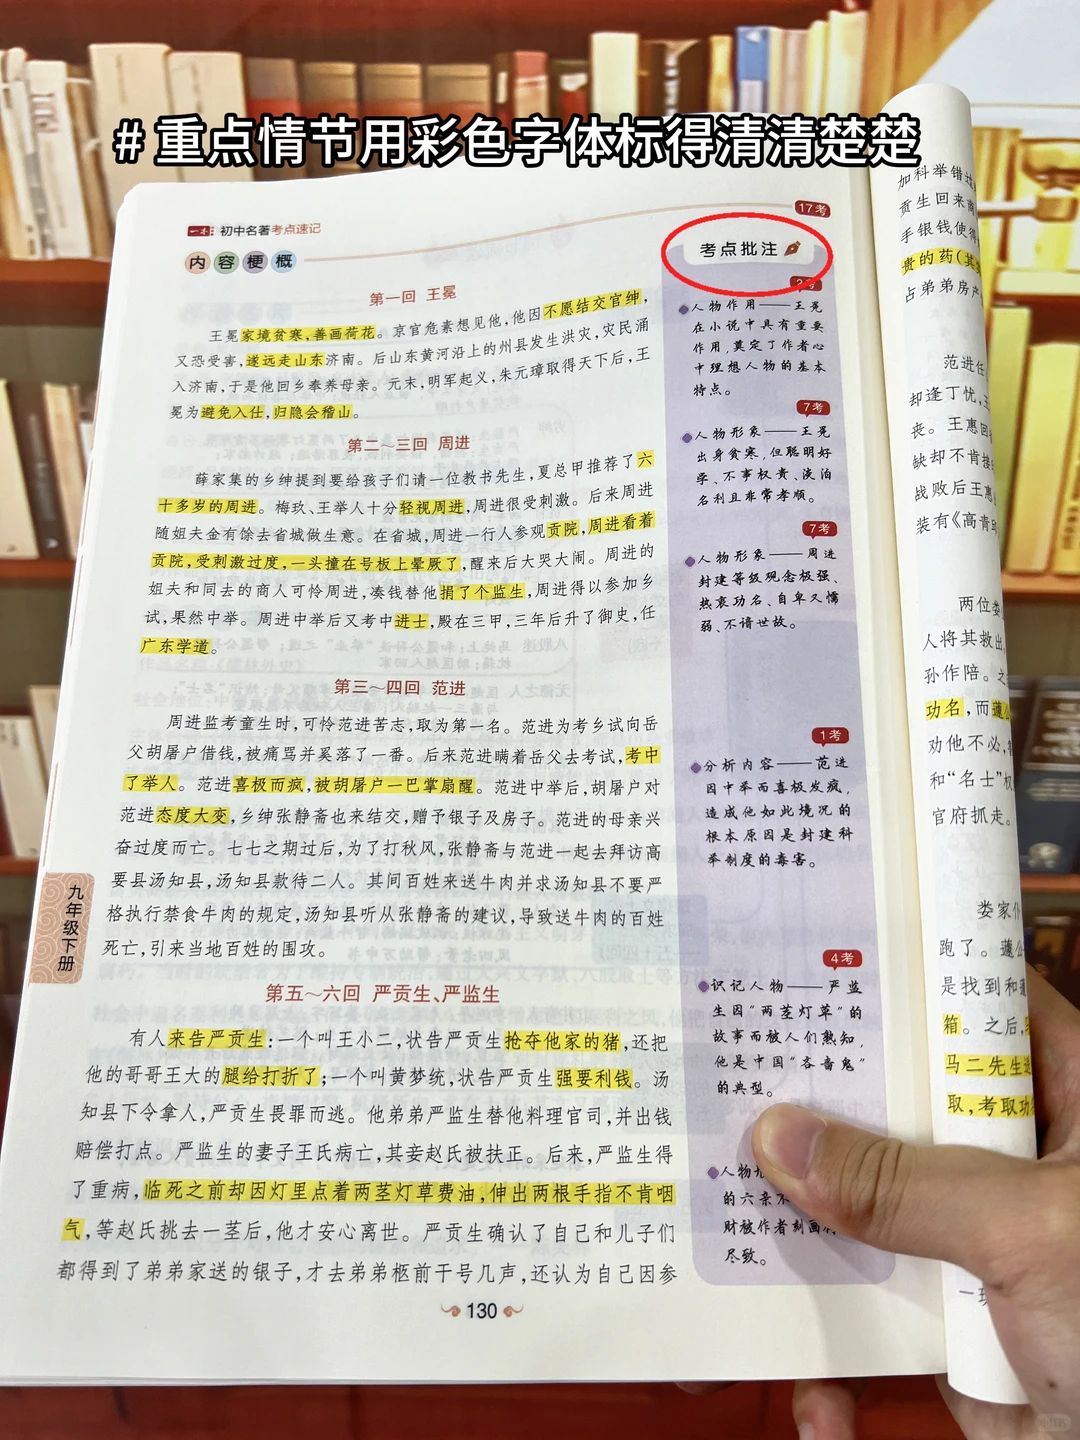 # 重点情节用彩色字体标得清清楚楚
一本 初中名著考点速记
17考
内容梗概
考点批注
第一回 王冕
王冕家境贫寒,善画荷花。京官危素想见他,他因不愿结交官绅,
又恐受害,遂远走山东济南。后山东黄河沿上的州县发生洪灾,灾民涌
入济南,于是他回乡奉养母亲。元末,明军起义,朱元璋取得天下后,王
冕为避免入仕,归隐会稽山。
第二~三回 周进
薛家集的乡绅提到要给孩子们请一位教书先生,夏总甲推荐了六
十多岁的周进。梅玖、王举人十分轻视周进,周进很受刺激。后来周进
随姐夫金有馀去省城做生意。在省城,周进一行人参观贡院,周进看着
贡院,受刺激过度,一头撞在号板上晕厥了,醒来后大哭大闹。周进的
姐夫和同去的商人可怜周进,凑钱替他捐了个监生,周进得以参加乡
试,果然中举。周进中举后又考中进士,殿在三甲,三年后升了御史,任
广东学道。
第三~四回 范进
周进监考童生时,可怜范进苦志,取为第一名。范进为考乡试向岳
父胡屠户借钱,被痛骂并奚落了一番。后来范进瞒着岳父去考试,考中
了举人。范进喜极而疯,被胡屠户一巴掌扇醒。范进中举后,胡屠户对
范进态度大变,乡绅张静斋也来结交,赠予银子及房子。范进的母亲兴
奋过度而亡。七七之期过后,为了打秋风,张静斋与范进一起去拜访高
要县汤知县,汤知县款待二人。其间百姓来送牛肉并求汤知县不要严
格执行禁食牛肉的规定,汤知县听从张静斋的建议,导致送牛肉的百姓
死亡,引来当地百姓的围攻。
第五~六回 严贡生、严监生
有人来告严贡生:一个叫王小二,状告严贡生抢夺他家的猪,还把
他的哥哥王大的腿给打折了;一个叫黄梦统,状告严贡生强要利钱。汤
知县下令拿人,严贡生畏罪而逃。他弟弟严监生替他料理官司,并出钱
赔偿打点。严监生的妻子王氏病亡,其妾赵氏被扶正。后来,严监生得
了重病,临死之前却因灯里点着两茎灯草费油,伸出两根手指不肯咽
气,等赵氏挑去一茎后,他才安心离世。严贡生确认了自己和儿子们
都得到了弟弟家送的银子,才去弟弟柩前干号几声,还认为自己因参
人物作用——王冕
在小说中具有重要
作用,奠定了作者心
中理想人物的基本
特点。
7考
人物形象——王冕
出身贫寒,但聪明好
学、不事权贵、淡泊
名利且非常孝顺。
7考
人物形象——周进
封建等级观念极强、
热衷功名、自卑又懦
弱、不谙世故。
1考
分析内容——范进
因中举而喜极发疯,
造成他如此境况的
根本原因是封建科
举制度的毒害。
4考
识记人物——严监
生因“两茎灯草”的
故事而被人们熟知,
他是中国“吝啬鬼”
的典型。
人物
的六亲不
财被作者刻画
尽致。
九年级下册
130
加科举错过
贡生回来商
手银钱使得
贵的药(其实
占弟弟房产
范进任
却逢丁忧,王
丧。王惠回
缺却不肯接
战败后王惠
装有《高青邱
两位娄
人将其救出
孙作陪。之
功名,而蘧公
劝他不必,
和“名士”权
官府抓走。
娄家仆
跑了。蘧公
是找到和蘧
箱。之后,
马二先生送
取,考取功